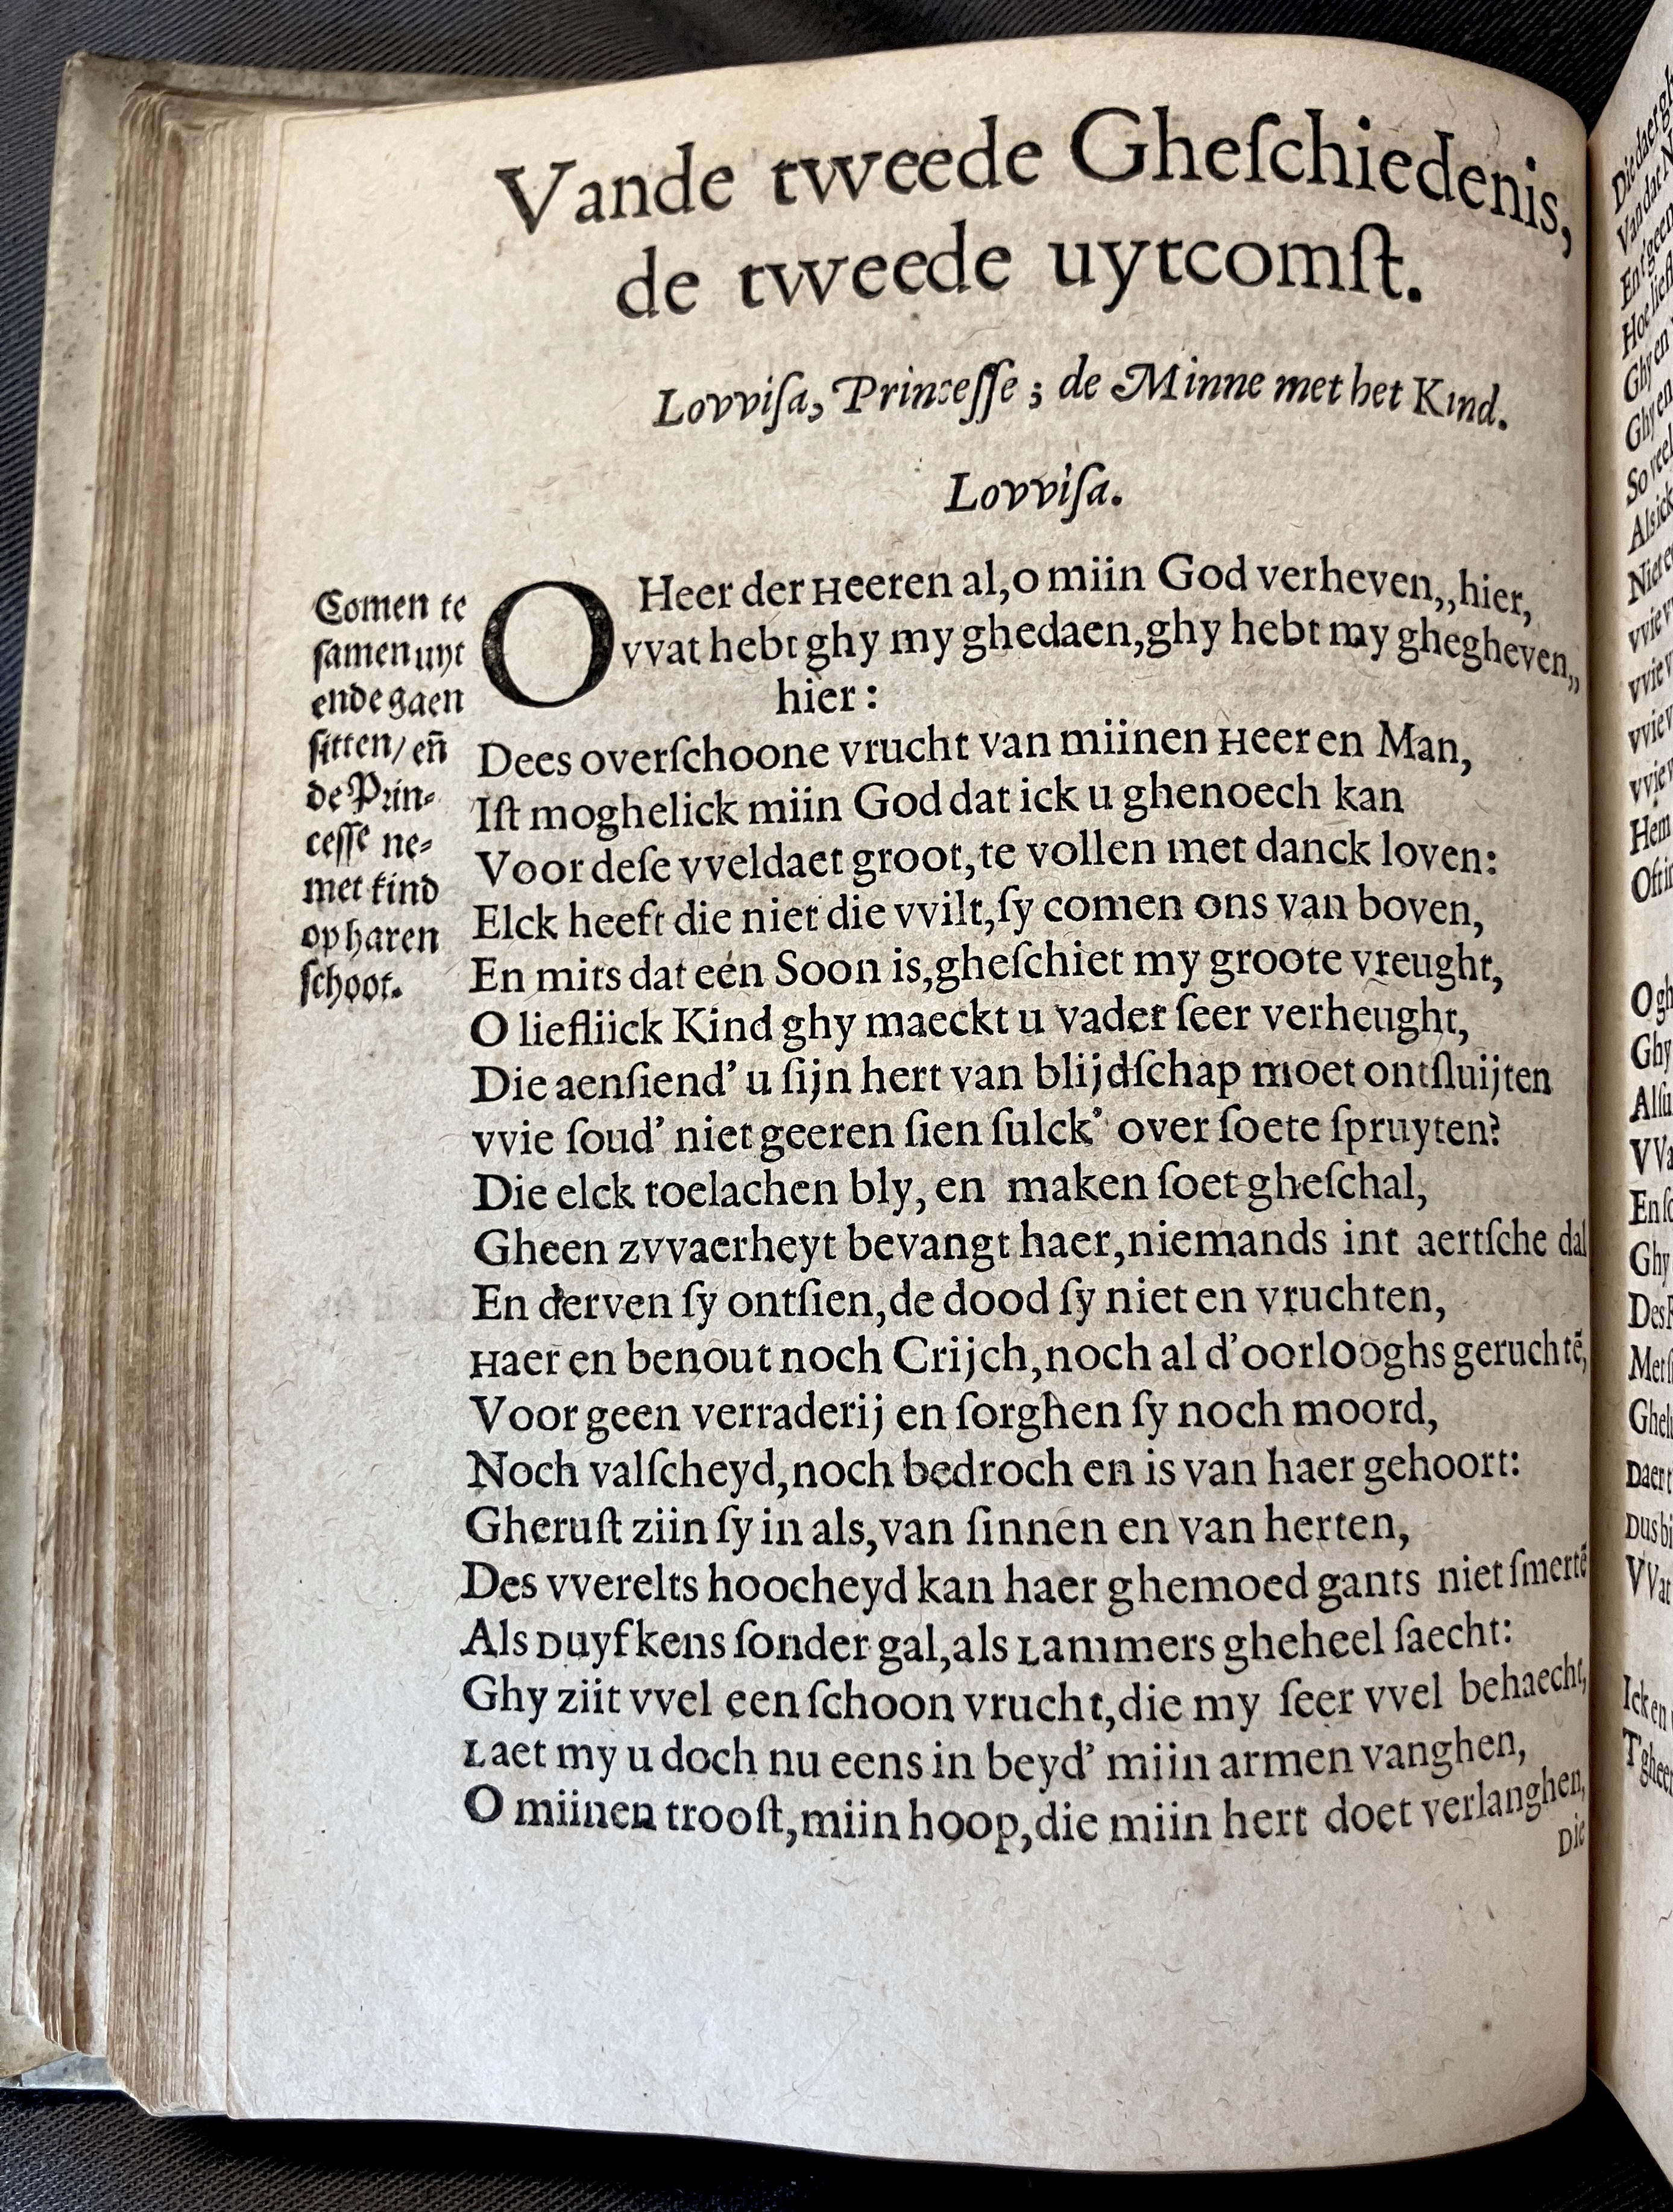 Vande tweede Gheſchiedenis,
de tweede uytcomſt.
Lovviſa, Princeſſe ; de Minne met het Kind.
Lovviſa.
Comen te
ſamen uyt
ende gaen
ſitten/ en̄
de Prin-
ceſſe ne-
met kind
op haren
ſchoot.
O Heer der Heeren al,o miin God verheven,,hier,
vvat hebt ghy my ghedaen,ghy hebt my ghegheven,,
hier:
Dees overſchoone vrucht van miinen Heer en Man,
Iſt moghelick miin God dat ick u ghenoech kan
Voor deſe vveldaet groot,te vollen met danck loven:
Elck heeft die niet die vvilt,ſy comen ons van boven,
En mits dat eén Soon is,gheſchiet my groote vreught,
O liefliick Kind ghy maeckt u vader ſeer verheught,
Die aenſiend' u ſijn hert van blijdſchap moet ontſluijten
vvie ſoud' niet geeren ſien ſulck' over ſoete ſpruyten?
Die elck toelachen bly, en maken ſoet gheſchal,
Gheen zvvaerheyt bevangt haer,niemands int aertſche dal
En derven ſy ontſien,de dood ſy niet en vruchten,
Haer en benout noch Crijch,noch al d'oorlooghs geruchtē,
Voor geen verraderij en ſorghen ſy noch moord,
Noch valſcheyd,noch bedroch en is van haer gehoort:
Gheruſt ziin ſy in als,van ſinnen en van herten,
Des vverelts hoocheyd kan haer ghemoed gants niet ſmertē
Als Duyfkens ſonder gal,als Lammers gheheel ſaecht:
Ghy ziit vvel een ſchoon vrucht,die my ſeer vvel behaecht,
Laet my u doch nu eens in beyd' miin armen vanghen,
O miinen trooſt,miin hoop,die miin hert doet verlanghen,
Die